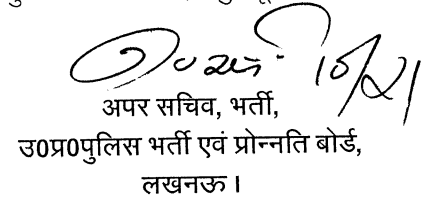 अपर सचिव, भर्ती,
उ0प्र0पुलिस भर्ती एवं प्रोन्नति बोर्ड,
लखनऊ ।